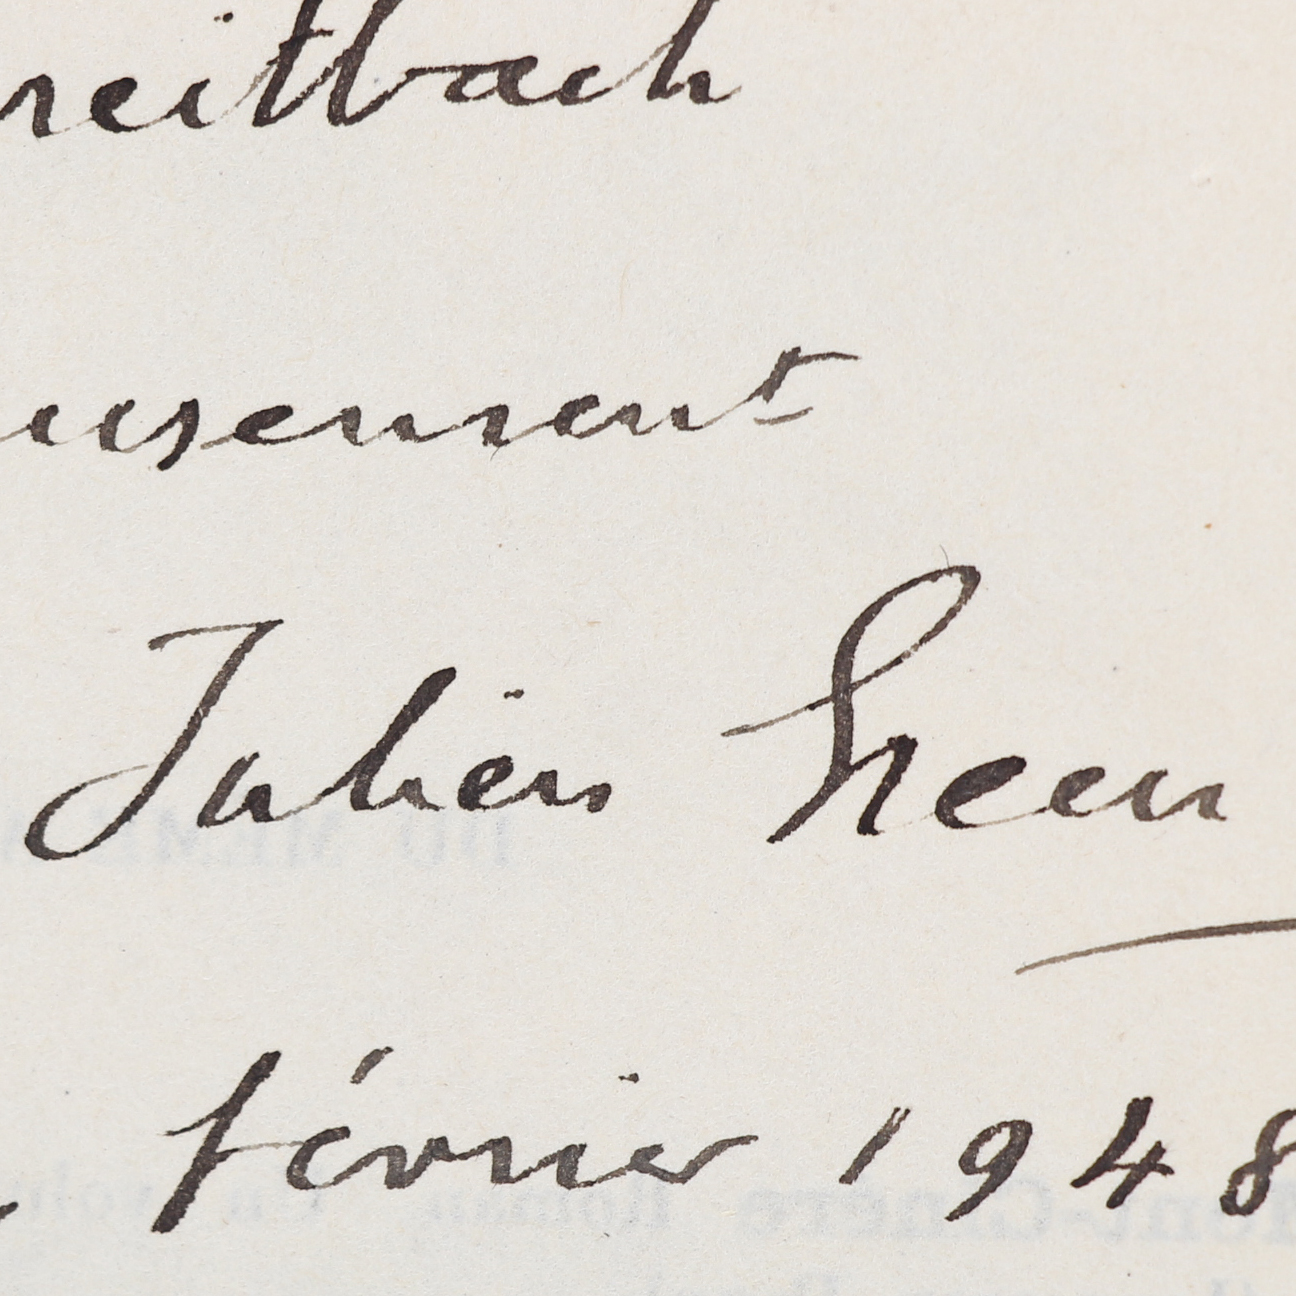 reitbach
usement
Julien Green
février 1948